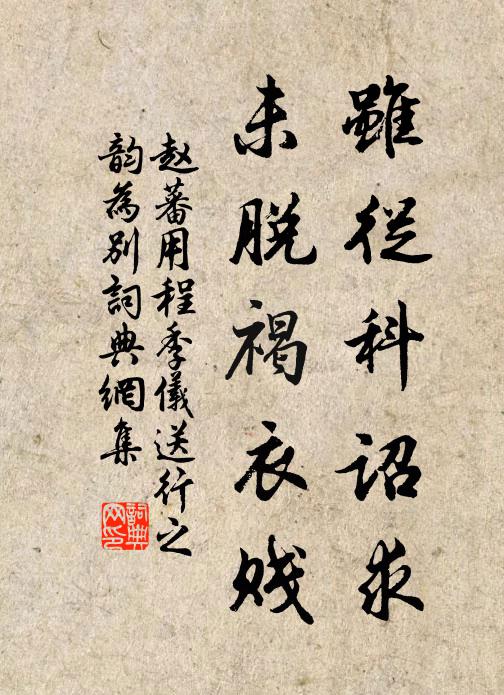 雖從科詔求
未脱褐衣賤
赵蕃用程季儀送行之
韵為别詞典網集
詞典网印